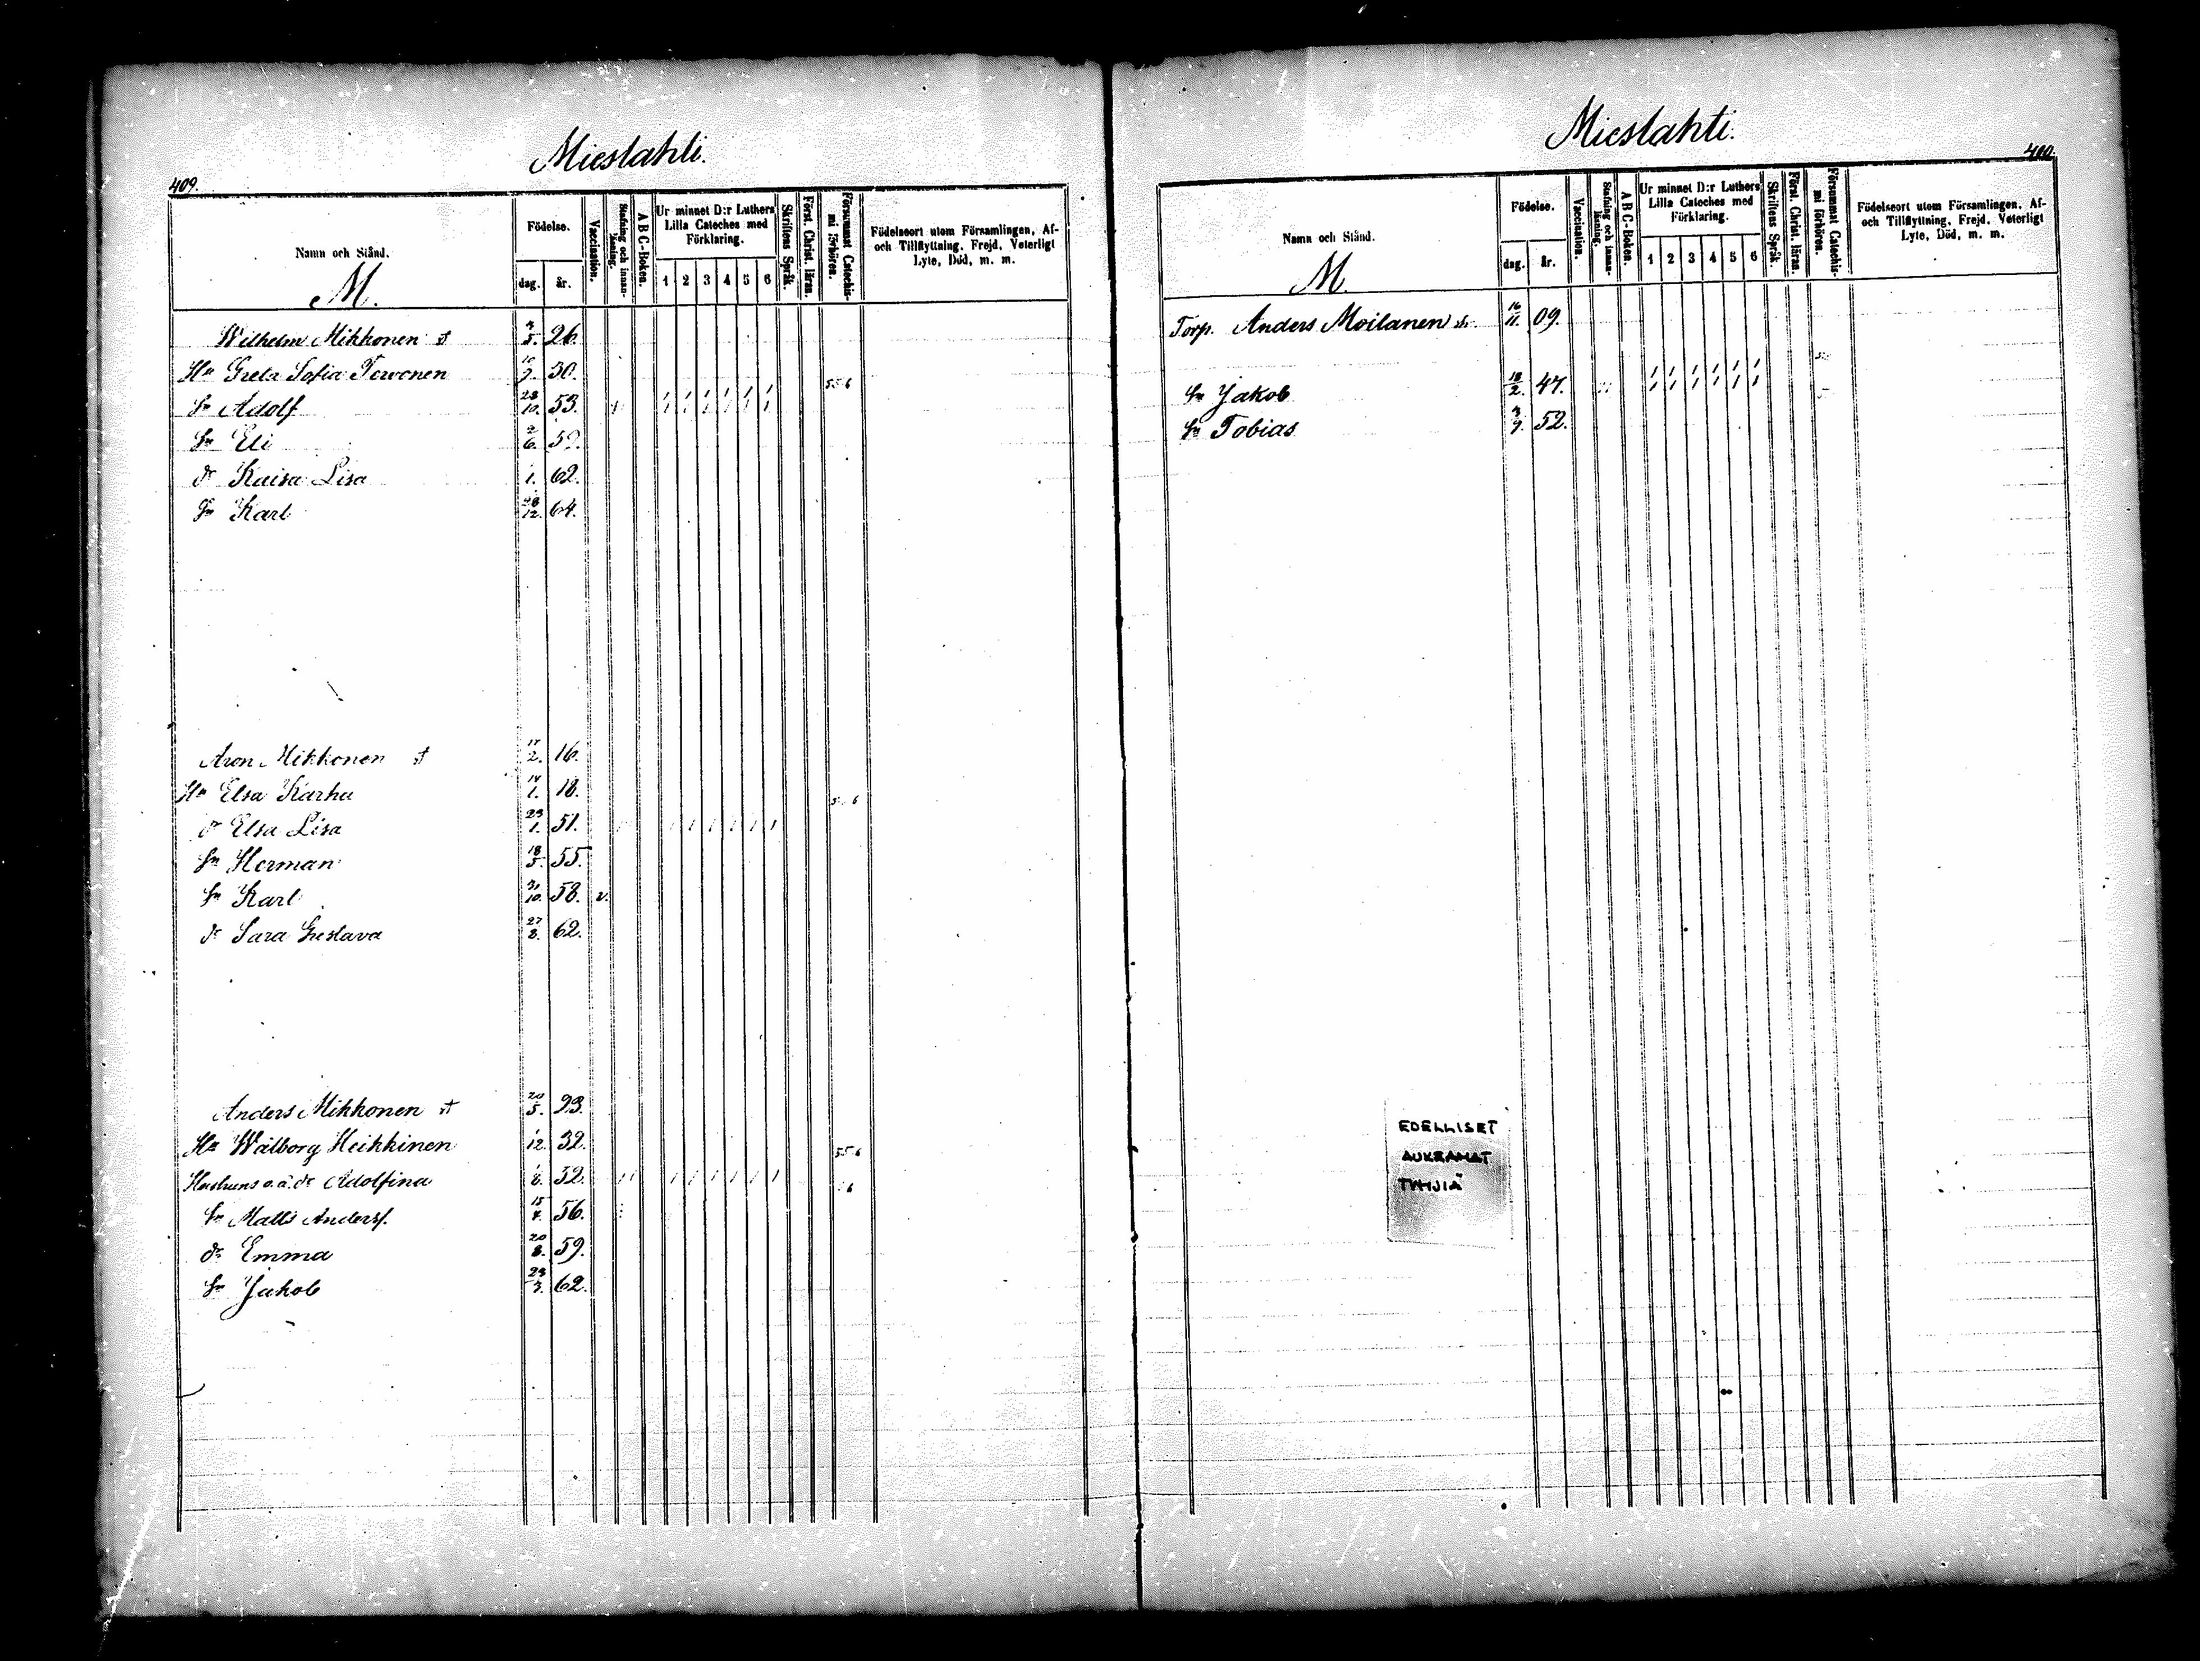 Mieslahti.
409.
Namn och Stånd.
M.
Födelse.
dag.
år.
Vaccination.
Stafning och innan-
läsning.
A B C-Boken.
Ur minnet D:r Luthers
Lilla Cateches med
Förklaring.
1 2 3 4 5 6
Skriftens Språk.
Först. Christ. läran.
Försummat Catechis-
mi förhören.
Födelseort utom Församlingen, Af-
och Tillflyttning, Frejd, Veterligt
Lyte, Död, m. m.
Wilhelm Mikkonen 26.
Hu Greta Sofia Tervonen 30. 556
Sn Adolf 28/10. 53.
Sn Eli 2/6. 59.
dr Kaisa Lisa 1. 62.
Sn Karl 28/12. 64.
Aron Mikkonen 17/2. 16.
Hu Elsa Karhu 14/1. 18.
dr Elsa Lisa 29/1. 51.
Sn Herman 18/5. 55.
Sn Karl 31/10. 58. v.
dr Sara Gustava 27/8. 62.
Anders Mikkonen 20/5. 23.
Hu Walborg Heikkinen 1/12. 32. 556
Hustruns o.ä. dr Adolfina 52.
Sn Matts Anders 56.
dr Emma 20/8. 59.
Sn Jakob 23/3. 62.
Mieslahti.
Namn och Stånd.
M.
Födelse.
dag.
år.
Vaccination.
Stafning och innan-
läsning.
A B C-Boken.
Ur minnet D:r Luthers
Lilla Cateches med
Förklaring.
1 2 3 4 5 6
Skriftens Språk.
Först. Christ. läran.
Försummat Catechis-
mi förhören.
Födelseort utom Församlingen, Af-
och Tillflyttning, Frejd, Veterligt
Lyte, Död, m. m.
Torp. Anders Moilanen 16/11. 09.
Sn Jakob 18/2. 47.
Sn Tobias 52.
EDELLISET
AUKEAMAT
TYHJIÄ